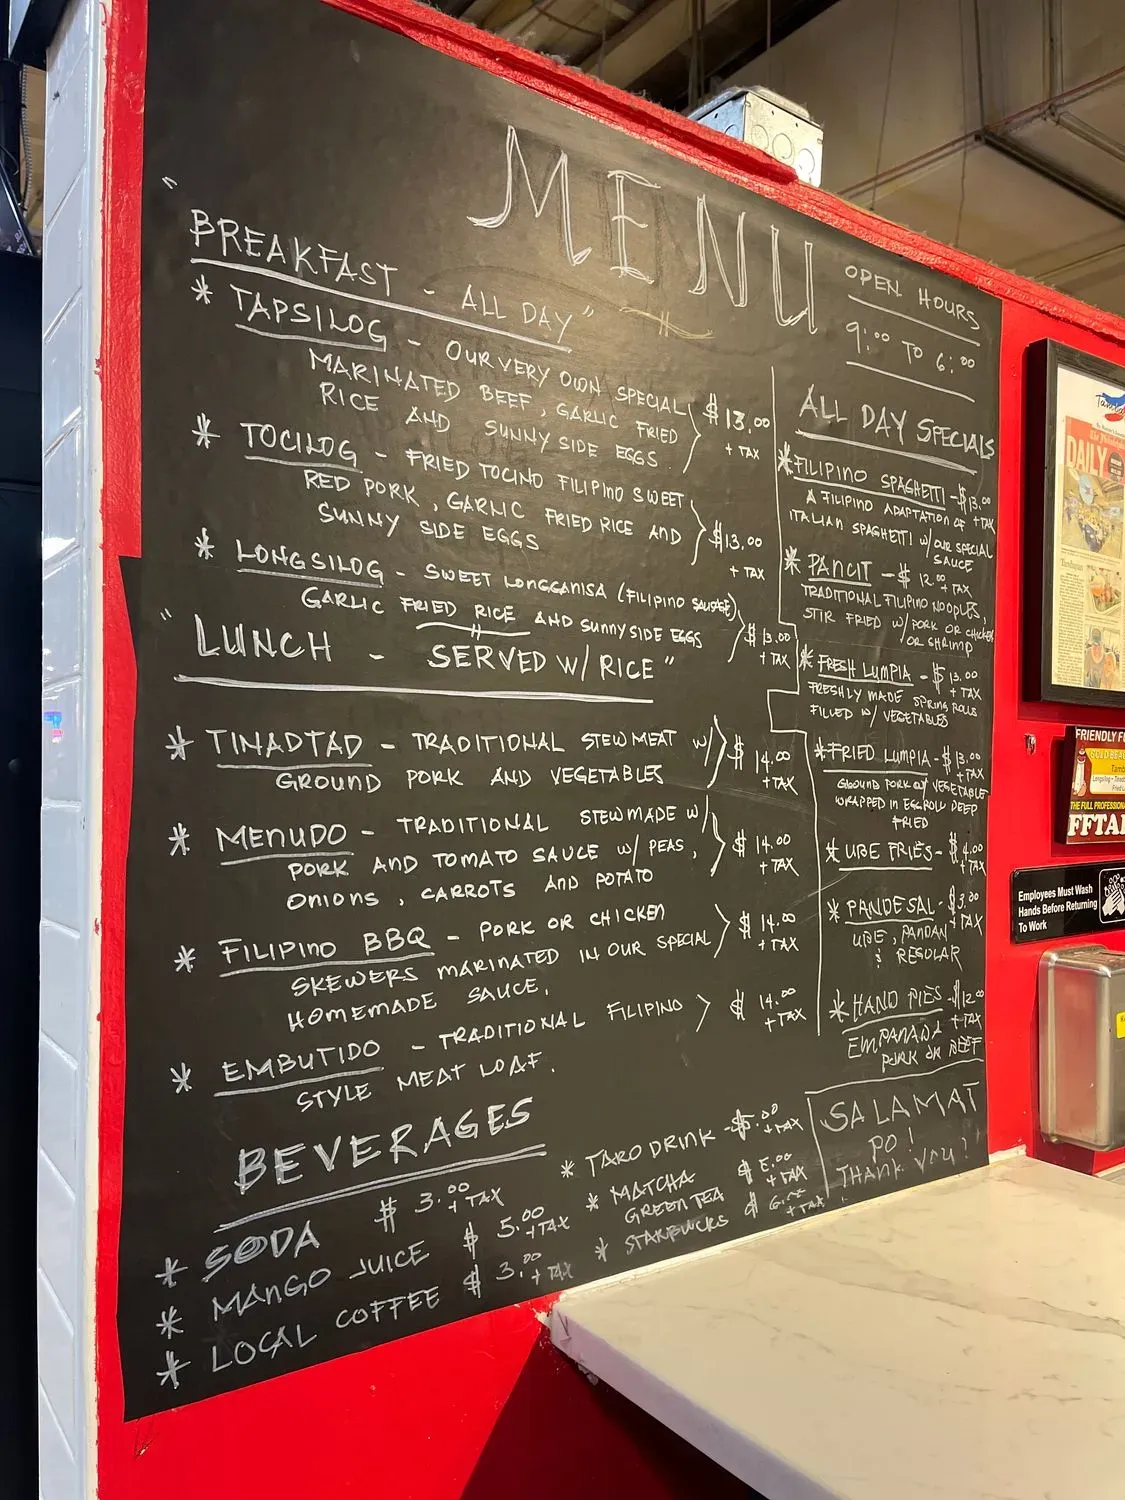 MENU
"
BREAKFAST - ALL DAY"
* TAPSILOG - OUR VERY OWN SPECIAL
MARINATED BEEF, GARLIC FRIED
RICE AND SUNNY SIDE EGGS.
$13.00
+ TAX
* TOCILOG - FRIED TOCINO FILIPINO SWEET
RED PORK, GARLIC FRIED RICE AND
SUNNY SIDE EGGS
$13.00
+ TAX
* LONGSILOG - SWEET LONGGANISA (FILIPINO SAUSAGE)
GARLIC FRIED RICE AND SUNNYSIDE EGGS
$13.00
+ TAX
"LUNCH - SERVED W/ RICE"
* TINADTAD - TRADITIONAL STEW MEAT W/
GROUND PORK AND VEGETABLES
$ 14.00
+TAX
* MENUDO - TRADITIONAL STEW MADE W/
PORK AND TOMATO SAUCE W/ PEAS,
ONIONS, CARROTS AND POTATO
$ 14.00
+ TAX
* FILIPINO BBQ - PORK OR CHICKEN
SKEWERS MARINATED IN OUR SPECIAL
HOMEMADE SAUCE.
$ 14.00
+TAX
* EMBUTIDO - TRADITIONAL FILIPINO
STYLE MEAT LOAF.
$ 14.00
+TAX
BEVERAGES
* SODA $ 3.00 +TAX
* MANGO JUICE $ 5.00 +TAX
* LOCAL COFFEE $ 3.00 + TAX
* TARO DRINK - $ .00 +TAX
* MATCHA
GREEN TEA $ .00 +TAX
* STARBUCKS $ 6. +TAX
OPEN HOURS
9:00 TO 6:00
ALL DAY SPECIALS
*FILIPINO SPAGHETTI - $13.00
+TAX
A FILIPINO ADAPTATION OF
ITALIAN SPAGHETTI W/ OUR SPECIAL
SAUCE
* PANCIT - $ 12.00 +TAX
TRADITIONAL FILIPINO NOODLES,
STIR FRIED W/ PORK OR CHICKEN
OR SHRIMP
* FRESH LUMPIA - $ 13.00
+TAX
FRESHLY MADE SPRING ROLLS
FILLED W/ VEGETABLES
*FRIED LUMPIA - $13.00
+TAX
GROUND PORK W/ VEGETABLE
WRAPPED IN EGGROLL DEEP
FRIED
* UBE FRIES - $ 4.00
+TAX
* PANDESAL - $3.00
+TAX
UBE, PANDAN
& REGULAR
*HAND PIES - $12.00
+TAX
EMPANADA
PORK OR BEEF
SALAMAT
PO!
THANK YOU!
DAILY
FRIENDLY
THE FULL PROFESSION
FFTA
Employees Must Wash
Hands Before Returning
To Work